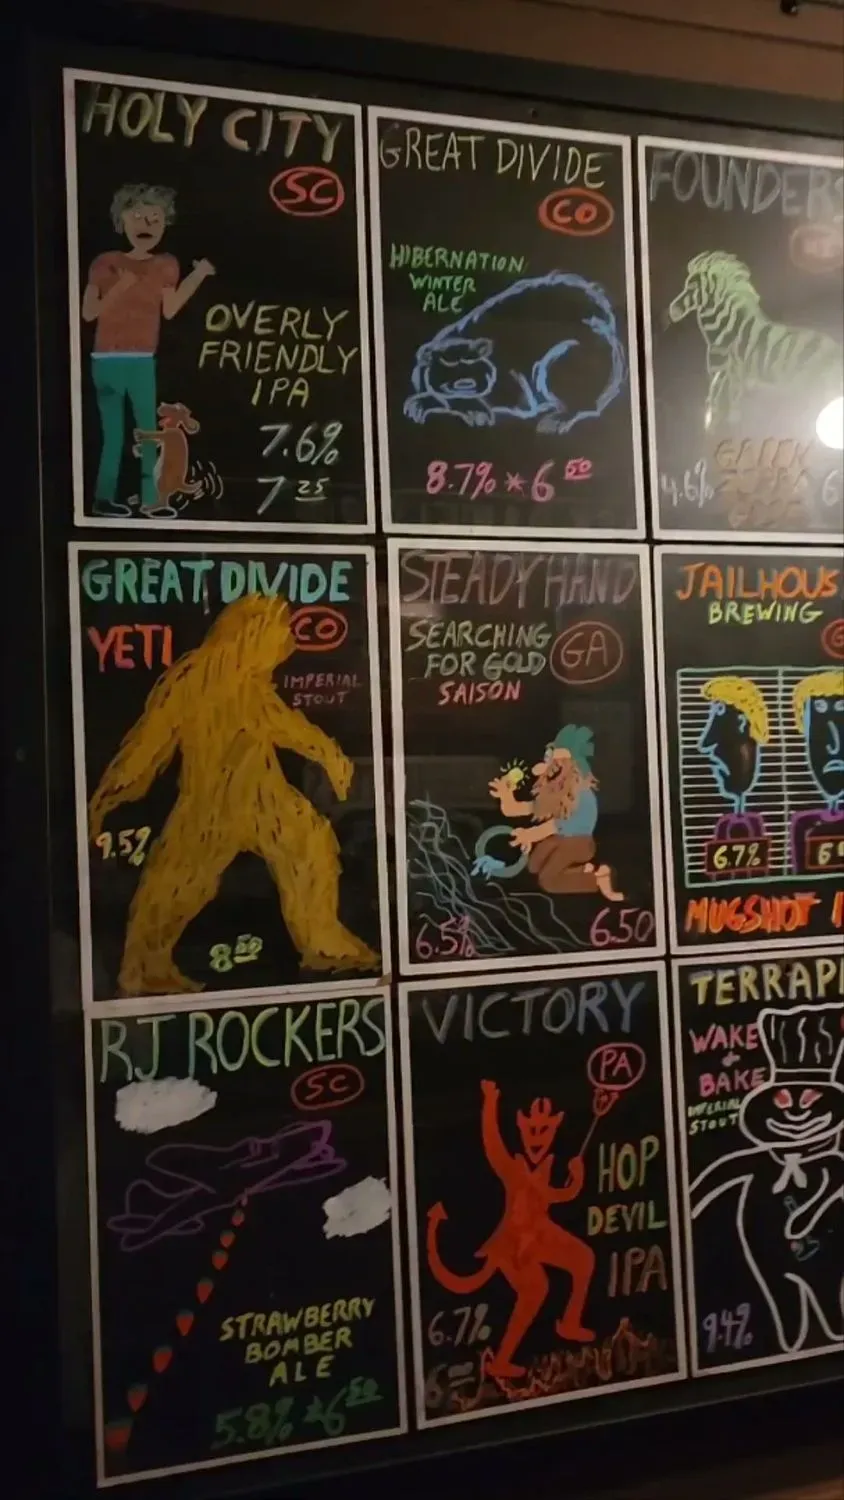 HOLY CITY
SC
OVERLY
FRIENDLY
IPA
7.6%
7 25
GREAT DIVIDE
CO
HIBERNATION
WINTER
ALE
8.7% * 6 50
FOUNDERS
4.6%
6
GREAT DIVIDE
YETI
CO
IMPERIAL
STOUT
9.5%
8 50
STEADY HAND
SEARCHING
FOR GOLD
GA
SAISON
6.5%
6.50
JAILHOUS
BREWING
G
6.7%
6
MUGSHOT I
RJ ROCKERS
SC
STRAWBERRY
BOMBER
ALE
5.8% * 6 50
VICTORY
PA
HOP
DEVIL
IPA
6.7%
6
TERRAPI
WAKE
+
BAKE
IMPERIAL
STOUT
9.4%